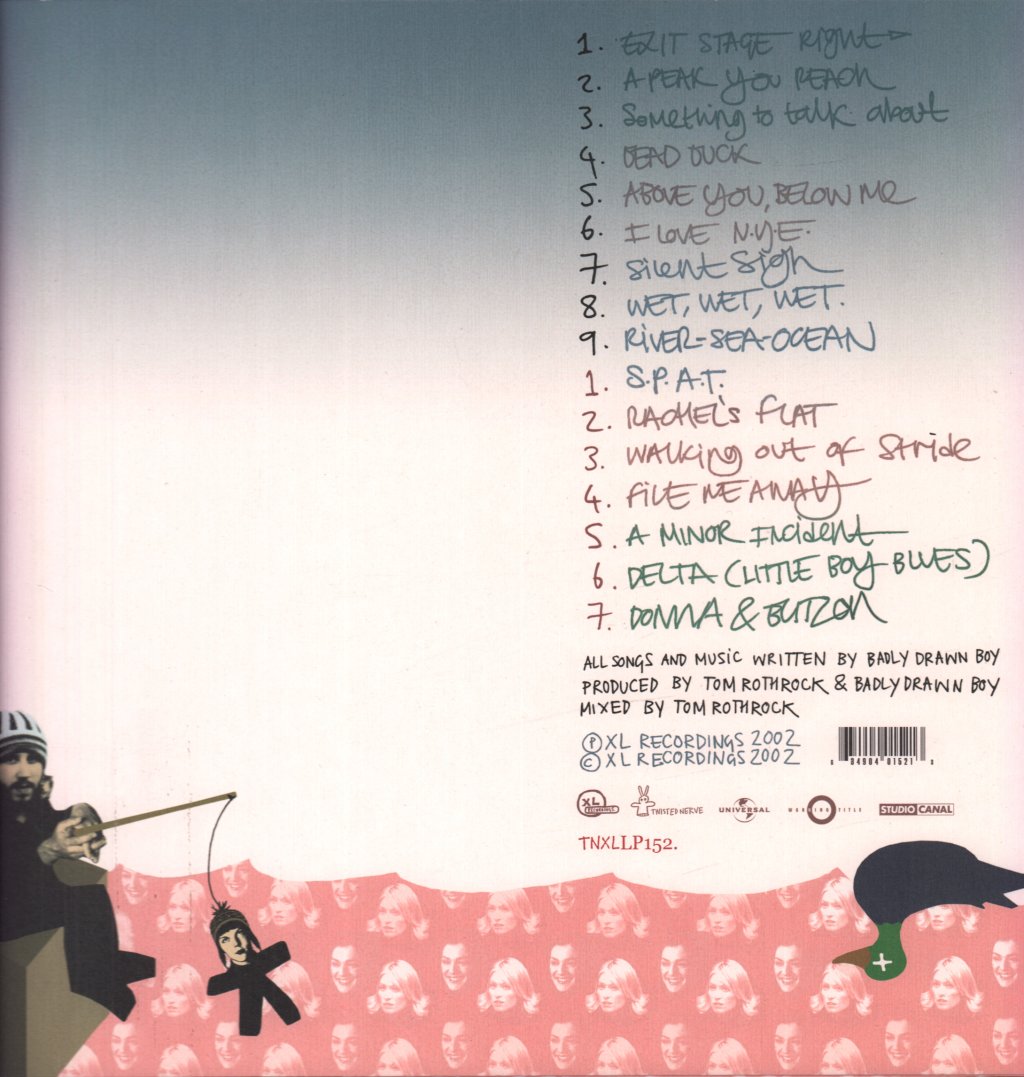 1. EXIT STAGE Right
2. A PEAK YOU REACH
3. Something to talk about
4. DEAD DUCK
5. ABOVE YOU, BELOW ME
6. I LOVE N.Y.E.
7. Silent Sigh
8. WET, WET, WET.
9. RIVER-SEA-OCEAN
1. S.P.A.T.
2. RACHEL'S FLAT
3. WALKING OUT OF STRIDE
4. FILE ME AWAY
5. A MINOR Incident
6. DELTA (LITTLE BOY BLUES)
7. DONNA & BLITZEN
ALL SONGS AND MUSIC WRITTEN BY BADLY DRAWN BOY
PRODUCED BY TOM ROTHROCK & BADLY DRAWN BOY
MIXED BY TOM ROTHROCK
Ⓟ XL RECORDINGS 2002
© XL RECORDINGS 2002
XL RECORDINGS TWISTED NERVE UNIVERSAL WORKING TITLE STUDIO CANAL
TNXLLP152.